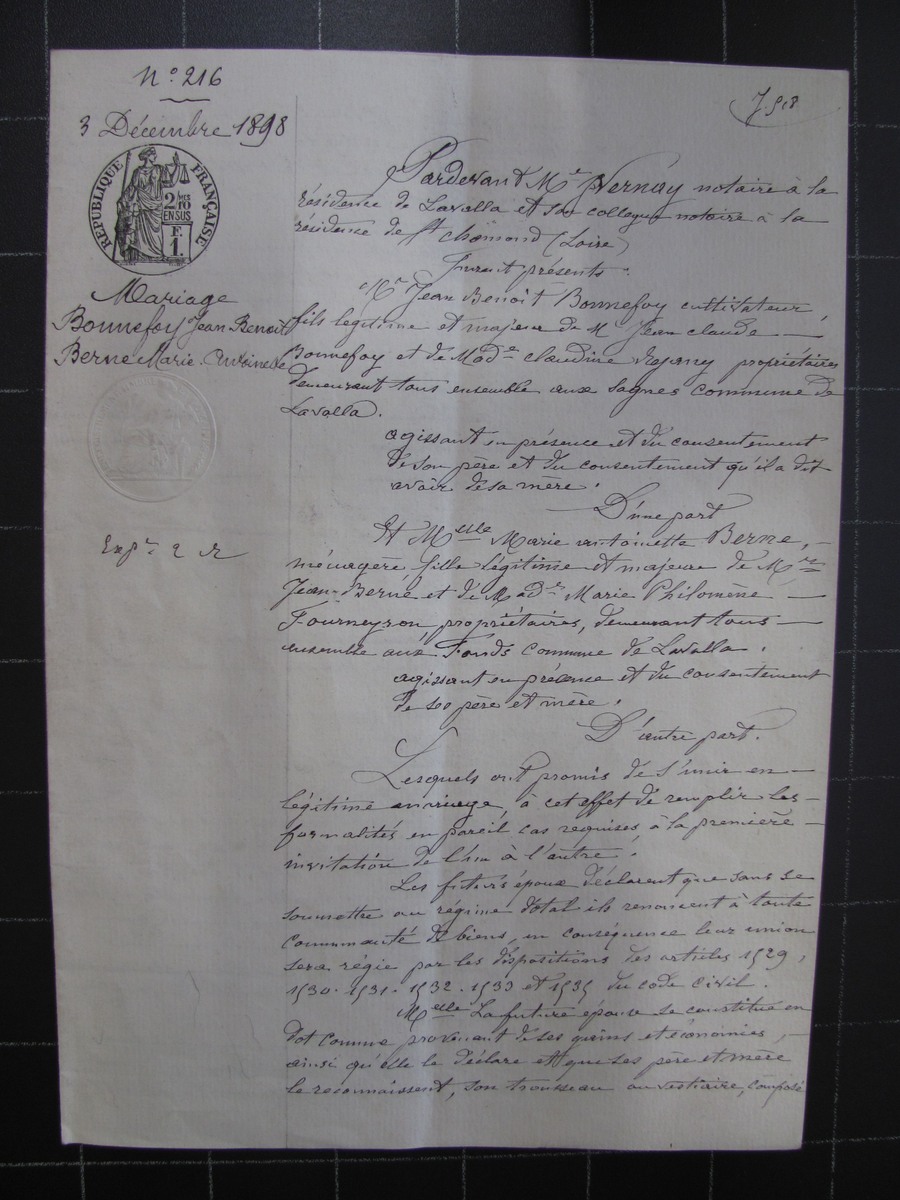 N° 216
3 Décembre 1898
J. 518
RÉPUBLIQUE FRANÇAISE
2/10mes
EN SUS
F
1
Mariage
Bonnefoy Jean Benoit
Berne Marie Antoinette
Pardevant Me Vernay notaire à la
résidence de Lavalla et son collegue notaire à la
résidence de St chamond (Loire)
Furent présents :
Mr Jean Benoit Bonnefoy cultivateur
fils légitime et majeur de M. Jean claude —
Bonnefoy et de Made claudine propriétaires
demeurant tous ensemble aux Sagnes commune de
Lavalla.
agissant en présence et du consentement
de son père et du consentement qu'il a dit
avoir de sa mère.
D'une part
Et Melle Marie antoinette Berne, —
ménagère fille légitime et majeure de Mr
Jean Berne et de Made Marie Philomène —
Fourneyron propriétaires, demeurant tous —
ensemble aux Fonds commune de Lavalla.
agissant en présence et du consentement
de ses père et mère.
D'autre part.
Lesquels ont promis de s'unir en —
légitime mariage, à cet effet de remplir les —
formalités en pareil cas requises à la première —
invitation de l'un à l'autre.
Les futurs époux déclarent que sans se
soumettre au régime dotal ils renoncent à toute
communauté de biens, en conséquence leur union
sera régie par les dispositions des articles 1529,
1530. 1531. 1532. 1533 et 1535 du code civil.
Melle La future épouse se constitue en
dot comme provenant de ses gains et économies, —
ainsi qu'elle le déclare et que ses père et mère
le reconnaissent, son trousseau ou vestiaire, composé